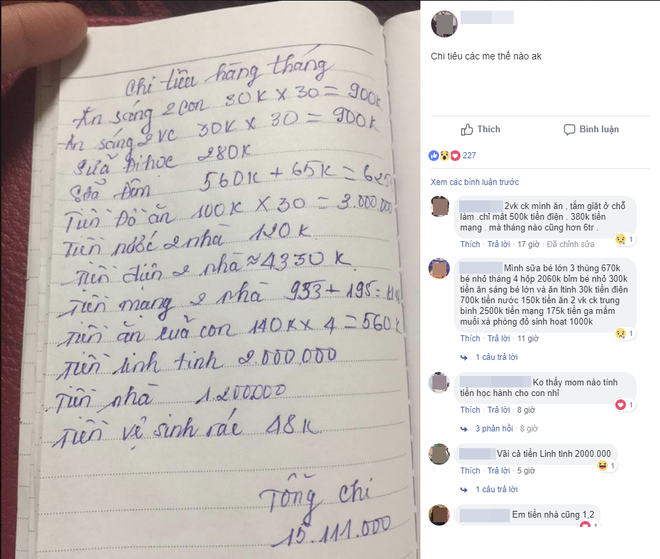 Chi tiêu hàng tháng
Ăn sáng 2 con 30K x 30 = 900K
Ăn sáng 2 vc 30K x 30 = 900K
Sữa đi học 280K
Sữa Đêm 560K + 65K = 625
Tiền Đồ ăn 100K x 30 = 3.000.000
Tiền nước 2 nhà 120K
Tiền điện 2 nhà ≈ 4350K
Tiền mạng 2 nhà 933 + 195 =
Tiền ăn của con 140K x 4 = 560K
Tiền linh tinh 2.000.000
Tiền nhà 1.200000
Tiền vệ sinh rác 48K
Tổng chi
15.111.000
Chi tiêu các mẹ thế nào ak
Thích Bình luận
227
Xem các bình luận trước
2vk ck mình ăn , tắm giặt ở chỗ
làm .chỉ mất 500k tiền điện . 380k tiền
mạng . mà tháng nào cũng hơn 6tr .
1
Thích · Trả lời · 17 giờ · Đã chỉnh sửa
Mình sữa bé lớn 3 thùng 670k
bé nhỏ tháng 4 hộp 2060k bỉm bé nhỏ 300k
tiền ăn sáng bé lớn và ăn ltinh 30k tiền điện
700k tiền nước 150k tiền ăn 2 vk ck trung
bình 2500k tiền mạng 175k tiền ga mắm
muối xà phòng đồ sinh hoạt 1000k
1
Thích · Trả lời · 11 giờ
1 câu trả lời
Ko thấy mom nào tính
tiền học hành cho con nhỉ
1
Thích · Trả lời · 8 giờ
3 phản hồi · 8 giờ
Vãi cả tiền Linh tinh 2000.000
1
Thích · Trả lời · 5 giờ
1 câu trả lời
Em tiền nhà cũng 1,2
1